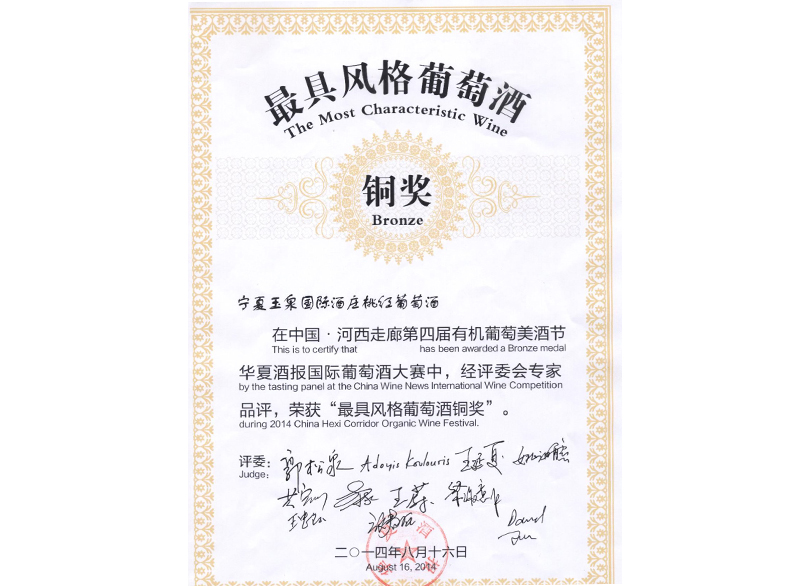 最具风格葡萄酒
The Most Characteristic Wine
铜奖
Bronze
宁夏玉泉国际酒庄桃红葡萄酒
在中国·河西走廊第四届有机葡萄美酒节
This is to certify that has been awarded a Bronze medal
华夏酒报国际葡萄酒大赛中，经评委会专家
by the tasting panel at the China Wine News International Wine Competition
品评，荣获“最具风格葡萄酒铜奖”。
during 2014 China Hexi Corridor Organic Wine Festival.
评委：
Judge:
郭松泉 Adonis Koulouris
David
二〇一四年八月十六日
August 16, 2014